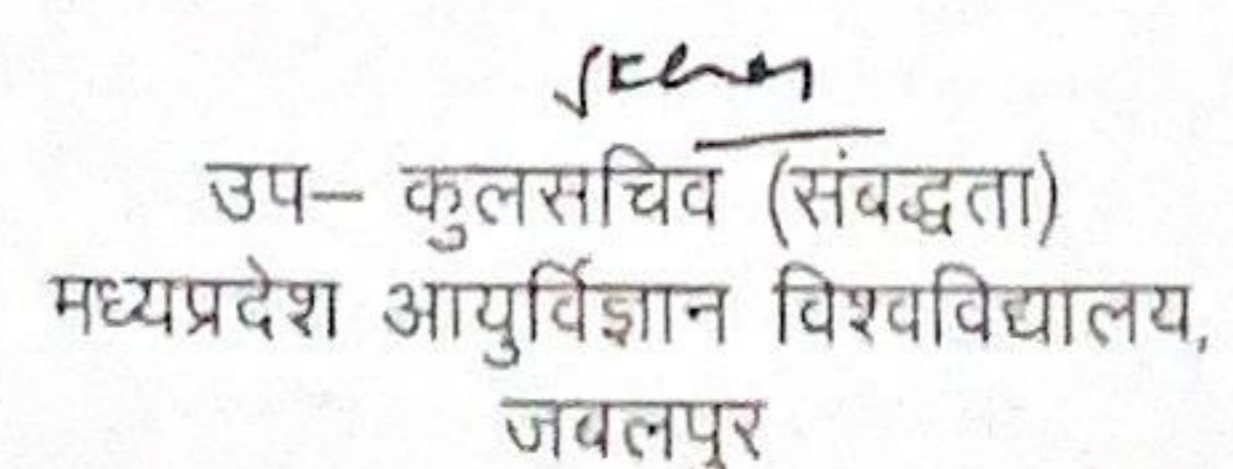 उप– कुलसचिव (संवद्धता)
मध्यप्रदेश आयुर्विज्ञान विश्वविद्यालय,
जबलपुर